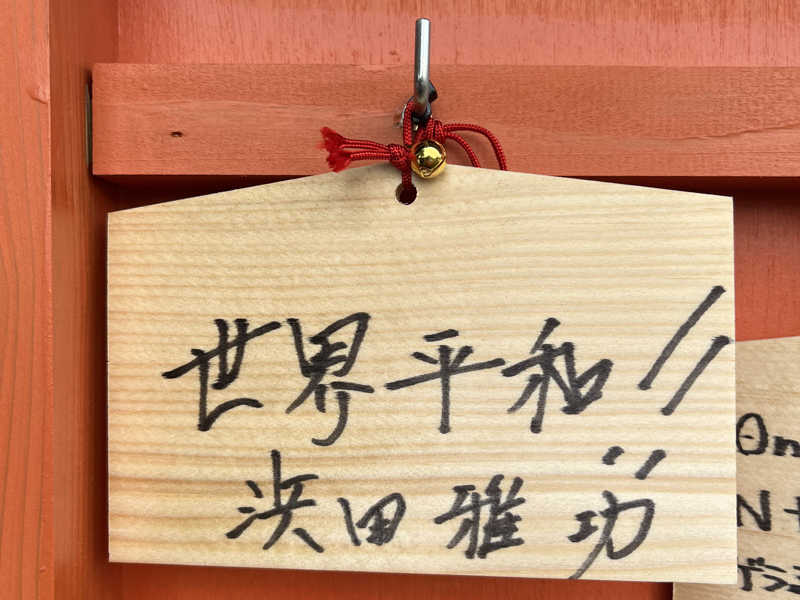 世界平和!!
浜田雅功
On